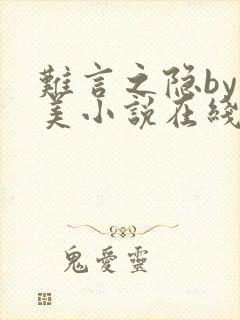 難言之隐by
美小説在綫
鬼愛靈